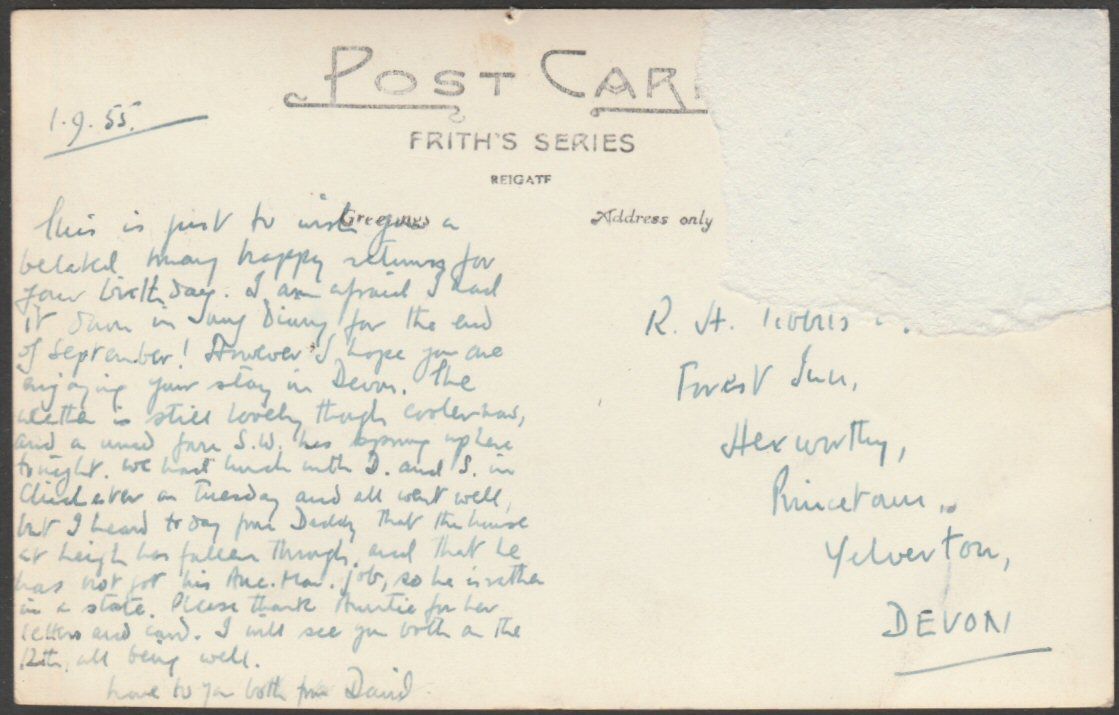 POST CAR
FRITH'S SERIES
REIGATE
Greetings
Address only
1.9.55.
This is just to wish you a
belated many happy returns for
your birthday. I am afraid I had
it down in my Diary for the end
of September! However I hope you are
enjoying your stay in Devon. The
weather is still lovely though cooler now,
and a wind from S.W. has sprung up here
tonight. We had lunch with D. and S. in
Chichester on Tuesday and all went well,
but I heard today from Daddy that the house
at Leigh has fallen through, and that he
has not got his Man. job, so he is rather
in a state. Please thank Auntie for her
letters and card. I will see you both on the
12th, all being well.
Love to you both from David.
R. H.
Forest Inn,
Hexworthy,
Princetown,
Yelverton,
DEVON